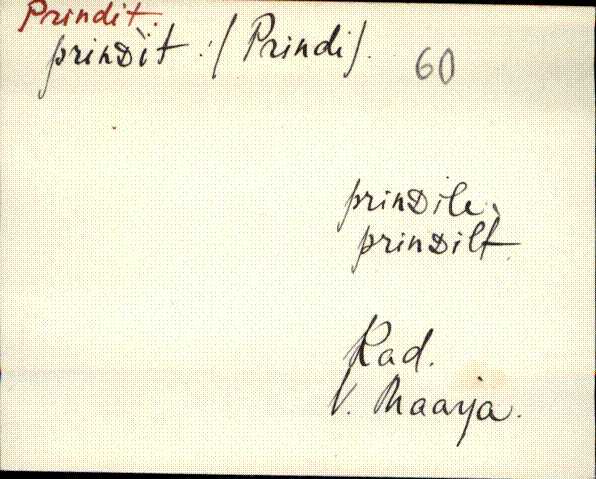 Prindit.
prinᴅ̀it : (Prindi). 60
prinᴅile,
prinᴅilt.
Kad.
V. Maarja.